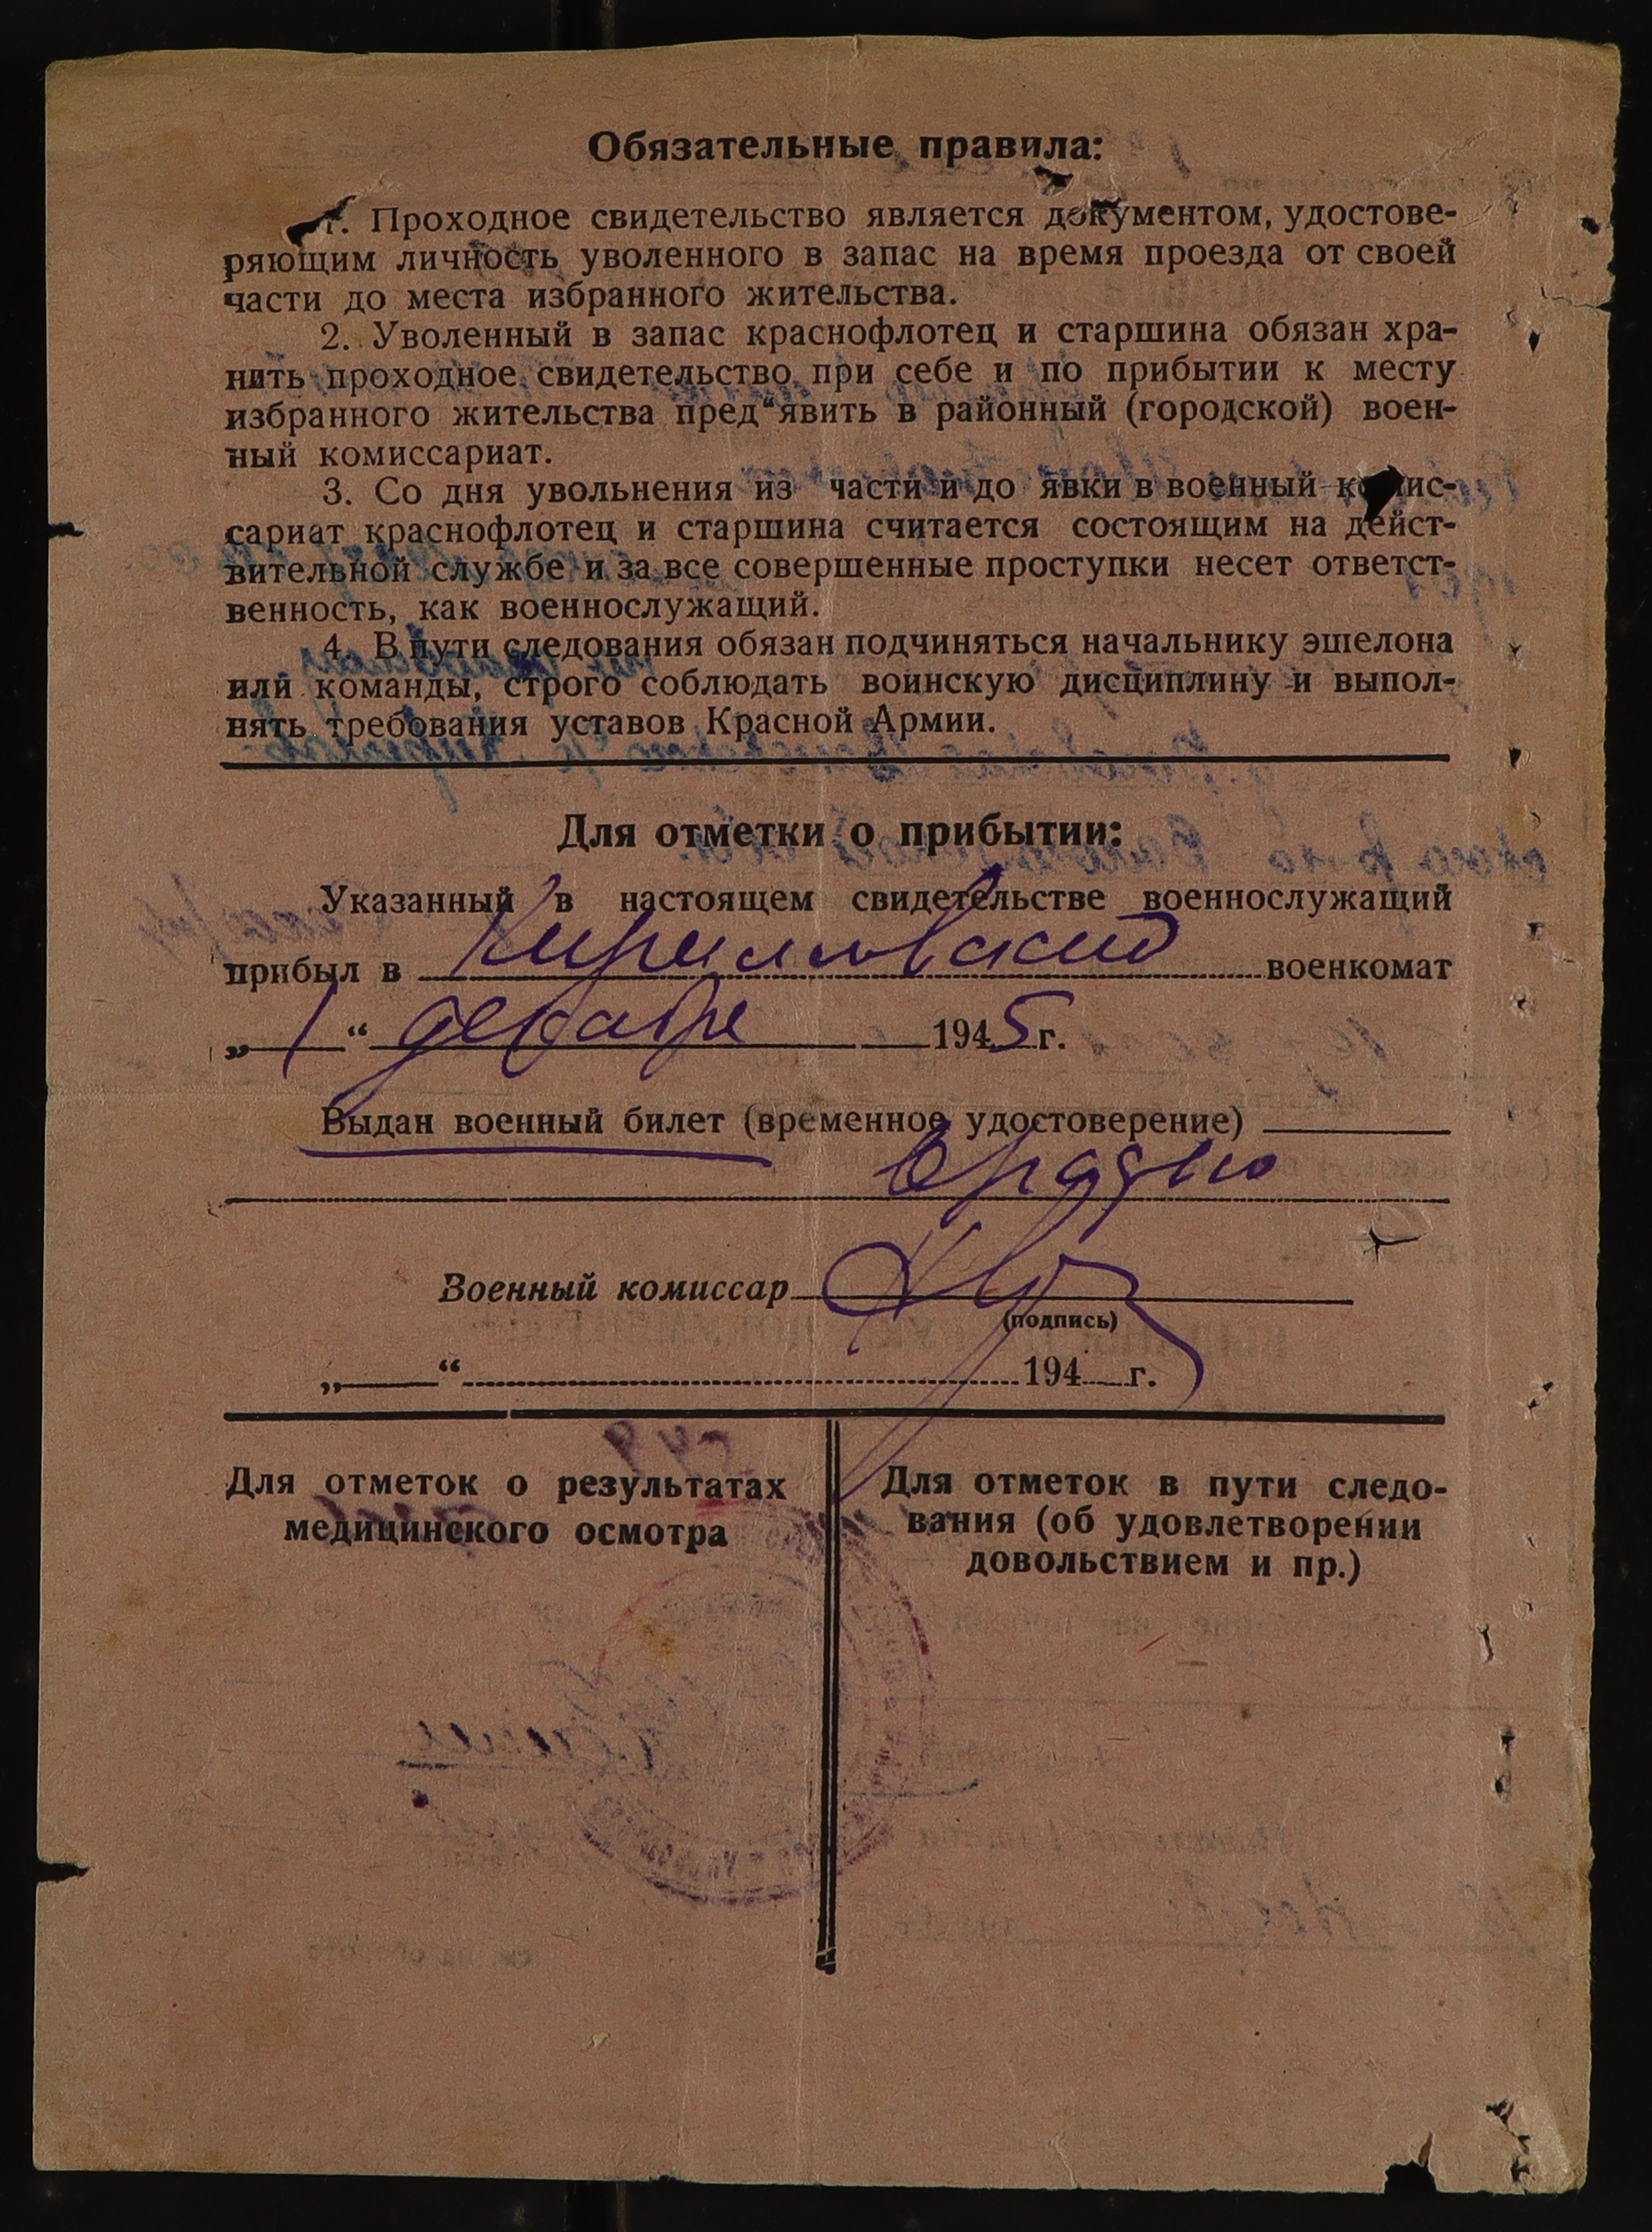 Обязательные правила:
1. Проходное свидетельство является документом, удостове-
ряющим личность уволенного в запас на время проезда от своей
части до места избранного жительства.
2. Уволенный в запас краснофлотец и старшина обязан хра-
нить проходное свидетельство при себе и по прибытии к месту
избранного жительства пред“явить в районный (городской) воен-
ный комиссариат.
3. Со дня увольнения из части и до явки в военный комис-
сариат краснофлотец и старшина считается состоящим на дейст-
вительной службе и за все совершенные проступки несет ответст-
венность, как военнослужащий.
4. В пути следования обязан подчиняться начальнику эшелона
или команды, строго соблюдать воинскую дисциплину и выпол-
нять требования уставов Красной Армии.
Для отметки о прибытии:
Указанный в настоящем свидетельстве военнослужащий
прибыл в Кирилловский военкомат
„1“ декабря 1945 г.
Выдан военный билет (временное удостоверение)
Военный комиссар
(подпись)
„ “ 194 г.
Для отметок о результатах
медицинского осмотра
Для отметок в пути следо-
вания (об удовлетворении
довольствием и пр.)